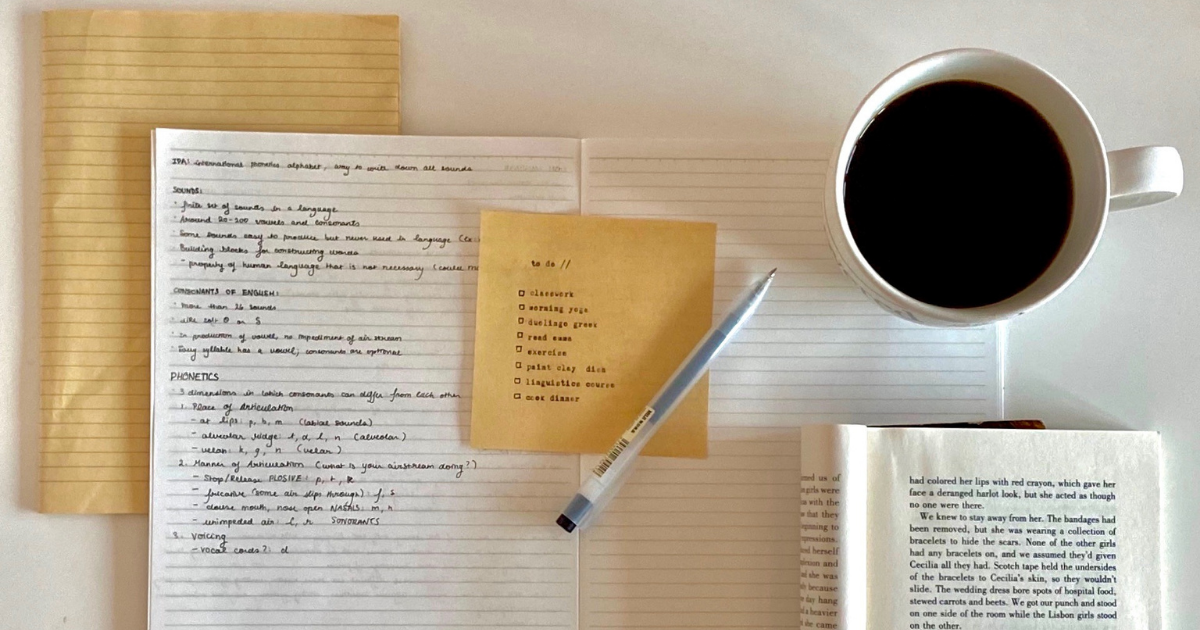 IPA: international phonetics alphabet, way to write down all sounds
SOUNDS:
· finite set of sounds in a language
· Around 20-200 vowels and consonants
· Some sounds easy to produce but never used in language (
· Building blocks for constructing words
- property of human language that is not necessary (could
CONSONANTS OF ENGLISH:
· more than 26 sounds
· like
· In production of vowel, no impediment of air stream
· Every syllable has a vowel, consonants are optional
PHONETICS
· 3 dimensions in which consonants can differ from each other
1. Place of Articulation
- at lips: p, b, m (labial sounds)
- alveolar ridge: t, d, l, n (alveolar)
- velar: k, g, n (velar)
2. Manner of Articulation (what is your airstream doing?)
- Stop/Release PLOSIVE: p, t, k
- fricative (some air slips through): f, s
- close mouth, nose open NASALS: m, n
- unimpeded air: l, r SONORANTS
3. Voicing
- vocal cords?: d
to do //
classwork
morning yoga
duolingo greek
read
exercise
paint clay dish
linguistics course
cook dinner
had colored her lips with red crayon, which gave her
face a deranged harlot look, but she acted as though
no one were there.
We knew to stay away from her. The bandages had
been removed, but she was wearing a collection of
bracelets to hide the scars. None of the other girls
had any bracelets on, and we assumed they'd given
Cecilia all they had. Scotch tape held the undersides
of the bracelets to Cecilia's skin, so they wouldn't
slide. The wedding dress bore spots of hospital food,
stewed carrots and beets. We got our punch and stood
on one side of the room while the Lisbon girls stood
on the other.